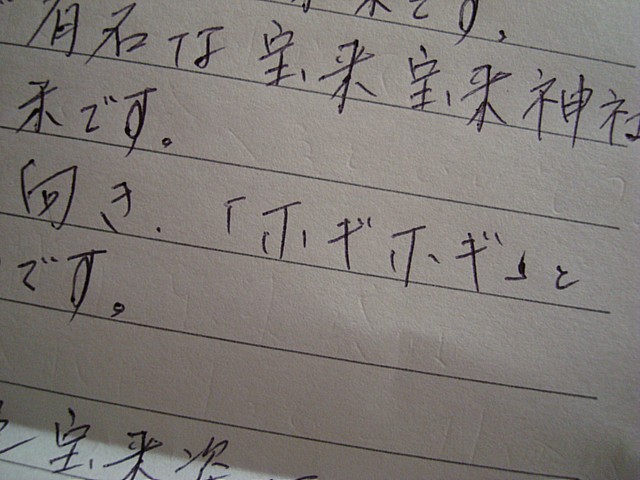 来です。
有名な宝来宝来神社
来です。
向き、「ホギホギ」と
です。
宝来次